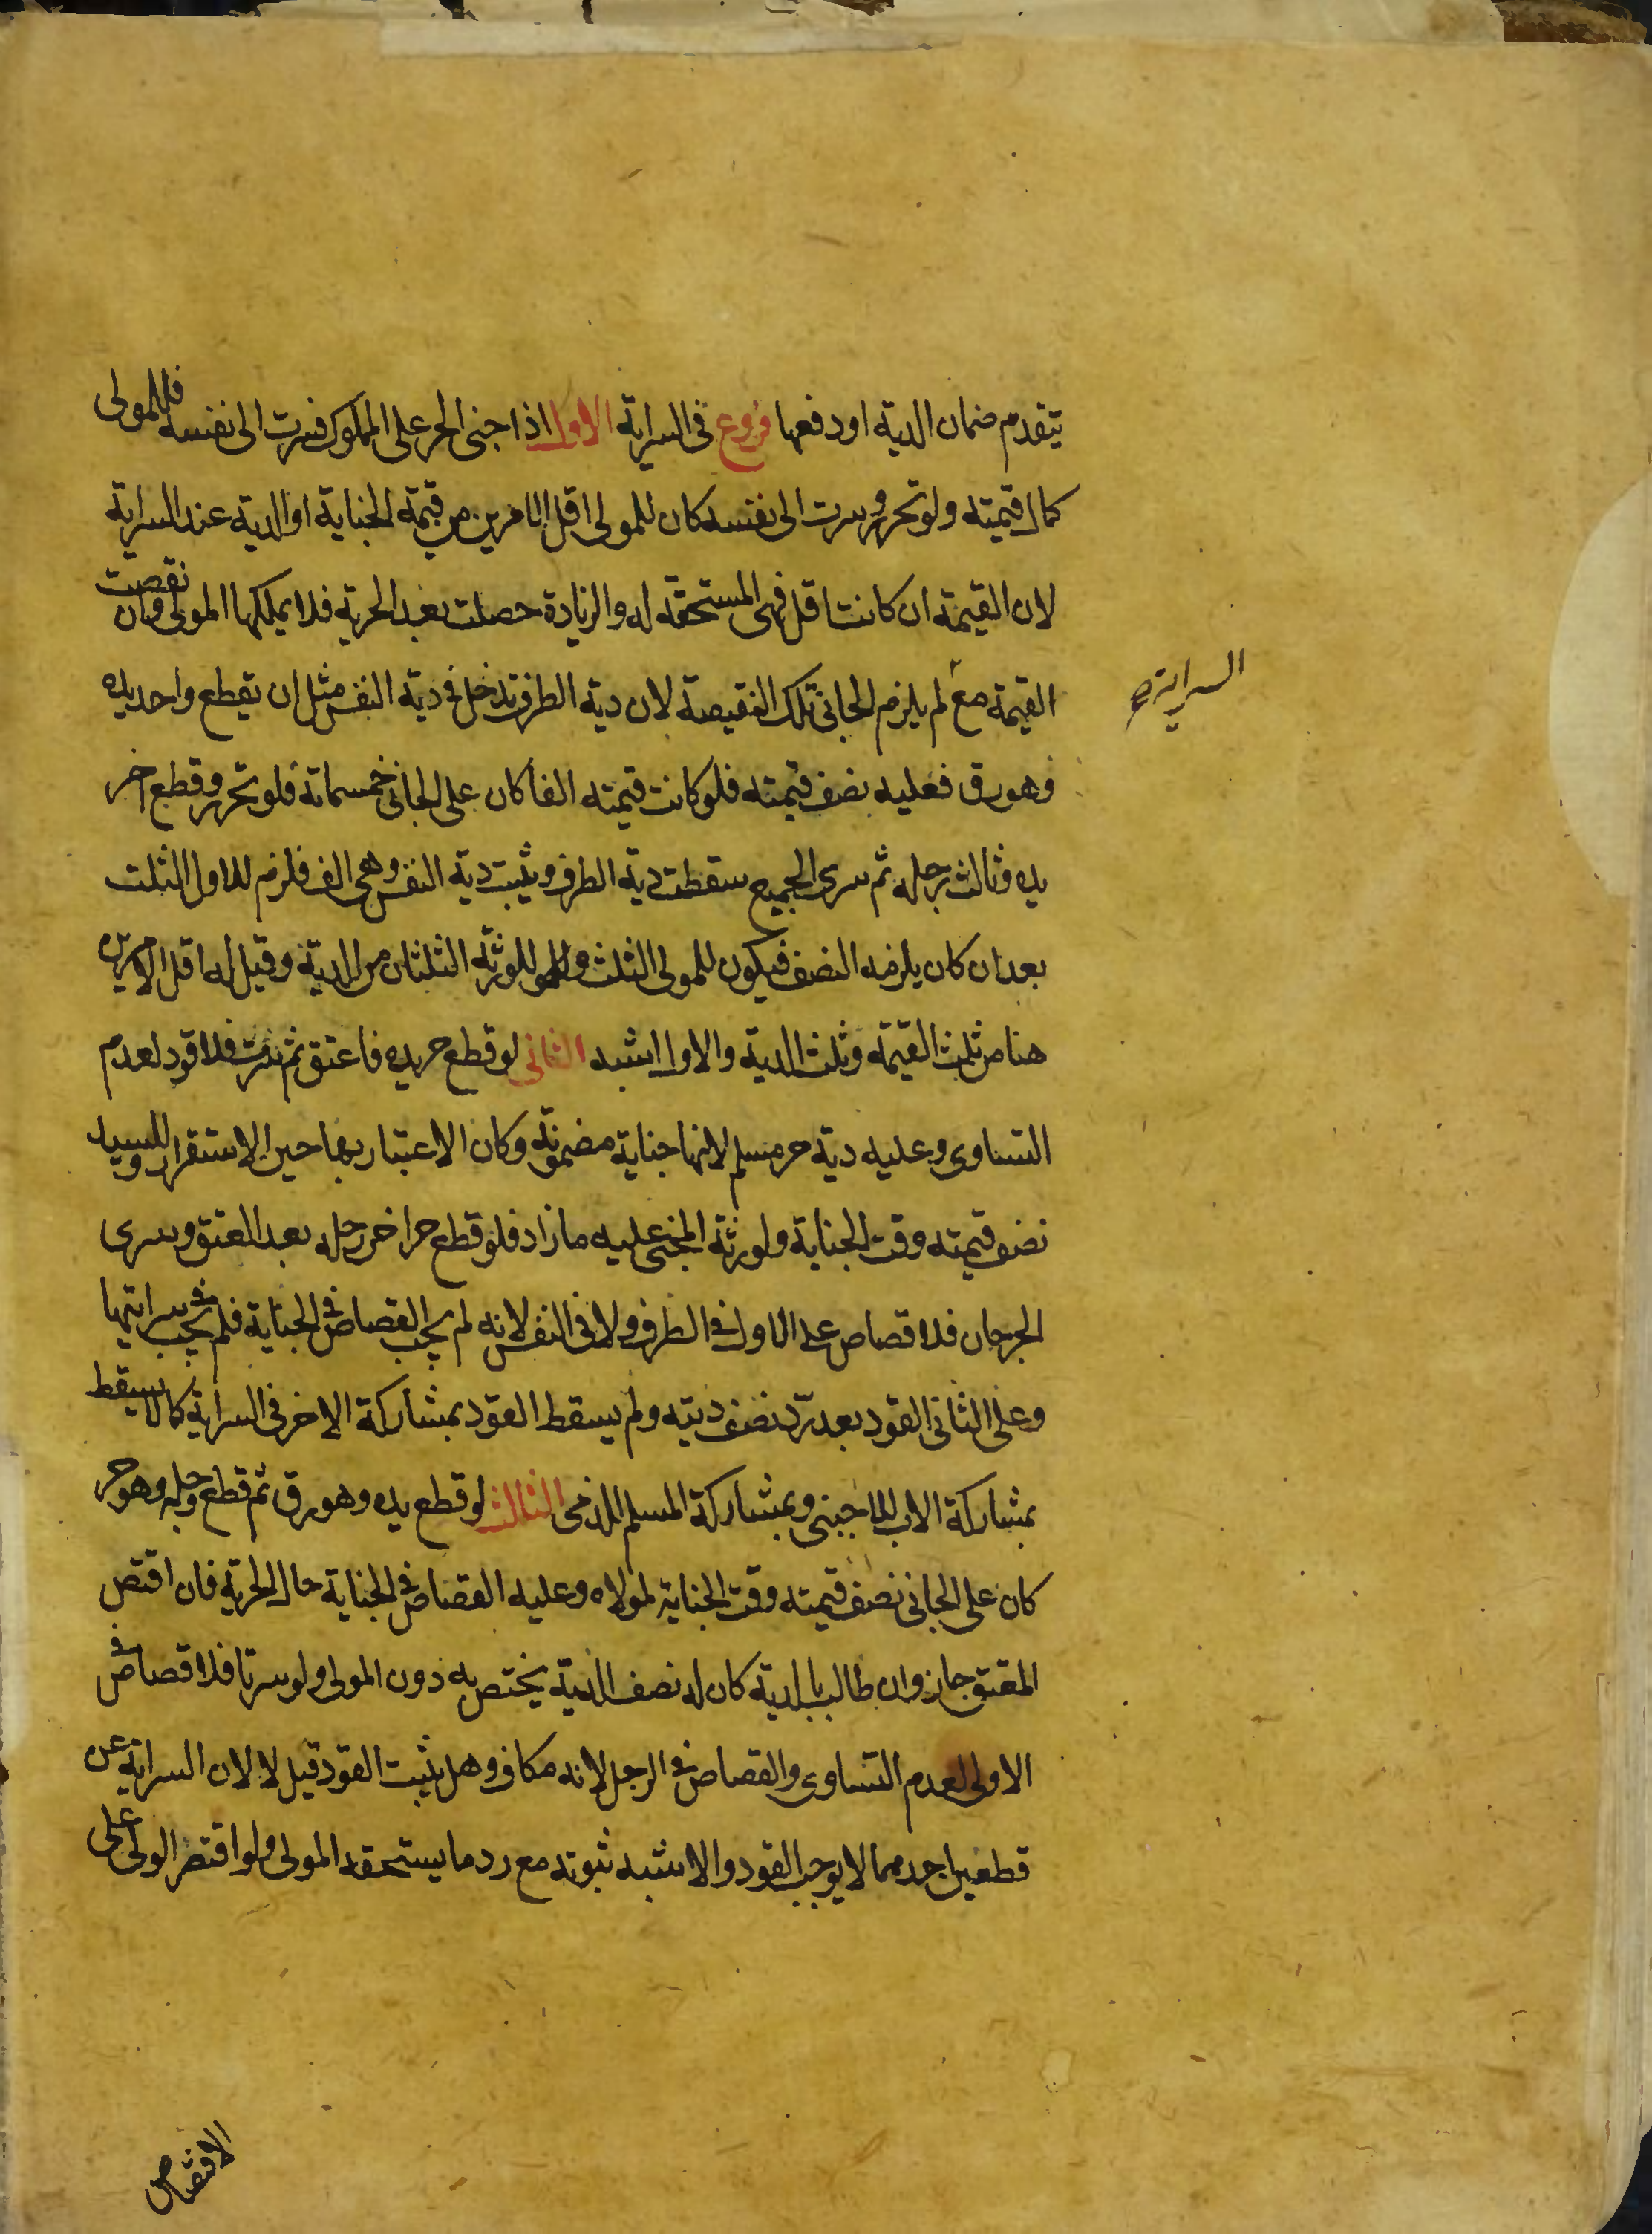 يتقدم ضمان الدية او دفعها فروع في السراية الاول اذا جنى الحر على المملوك فسرت الى نفسه فللمولى
كمال قيمته ولو تحرر وسرت الى نفسه كان للمولى اقل الامرين من قيمة الجناية او الدية عند السراية
لان القيمة ان كانت اقل فهي المستحقة له والزيادة حصلت بعد الحرية فلا يملكها المولى وان نقصت
القيمة مع لم يلزم الجاني تلك النقيصة لان دية الطرف تدخل في دية النفس مثل ان يقطع واحد يده
وهو رق فعليه نصف قيمته فلو كانت قيمته الفا كان على الجاني خمسمائة فلو تحرر وقطع اخر
يده وثالث رجله ثم سرى الجميع سقطت دية الطرف ويثبت دية النفس وهي الف فلزم للاول الثلث
بعد ان كان يلزمه النصف فيكون للمولى الثلث وللورثة الثلثان من الدية وقيل له اقل الامرين
هنا من ثلث القيمة وثلث الدية والاول اشبه الثاني لو قطع حر يده فاعتق ثم سرت فلا قود لعدم
التساوي وعليه دية حر مسلم لانها جناية مضمونة وكان الاعتبار بها حين الاستقرار وللسيد
نصف قيمته وقت الجناية ولورثة المجني عليه ما زاد فلو قطع حر اخر رجله بعد العتق وسرى
الجرحان فلا قصاص على الاول في الطرف ولا في النفس لانه لم يجب القصاص في الجناية فلم يجب في سرايتها
وعلى الثاني القود بعد رد نصف ديته ولم يسقط القود بمشاركة الاخر في السراية كما لا يسقط
بمشاركة الاب للاجنبي وبمشاركة المسلم للذمي الثالث لو قطع يده وهو رق ثم قطع رجله وهو حر
كان على الجاني نصف قيمته وقت الجناية لمولاه وعليه القصاص في الجناية حال الحرية فان اقتص
المعتق جاز وان طالب بالدية كان له نصف الدية يختص به دون المولى ولو سرتا فلا قصاص في
الاولى لعدم التساوي والقصاص في الرجل لانه مكاف وهل يثبت القود قيل لا لان السراية عن
قطعين احدهما لا يوجب القود والاشبه ثبوته مع رد ما يستحقه المولى ولو اقتصر الولي على
السراية
الاقتصاص